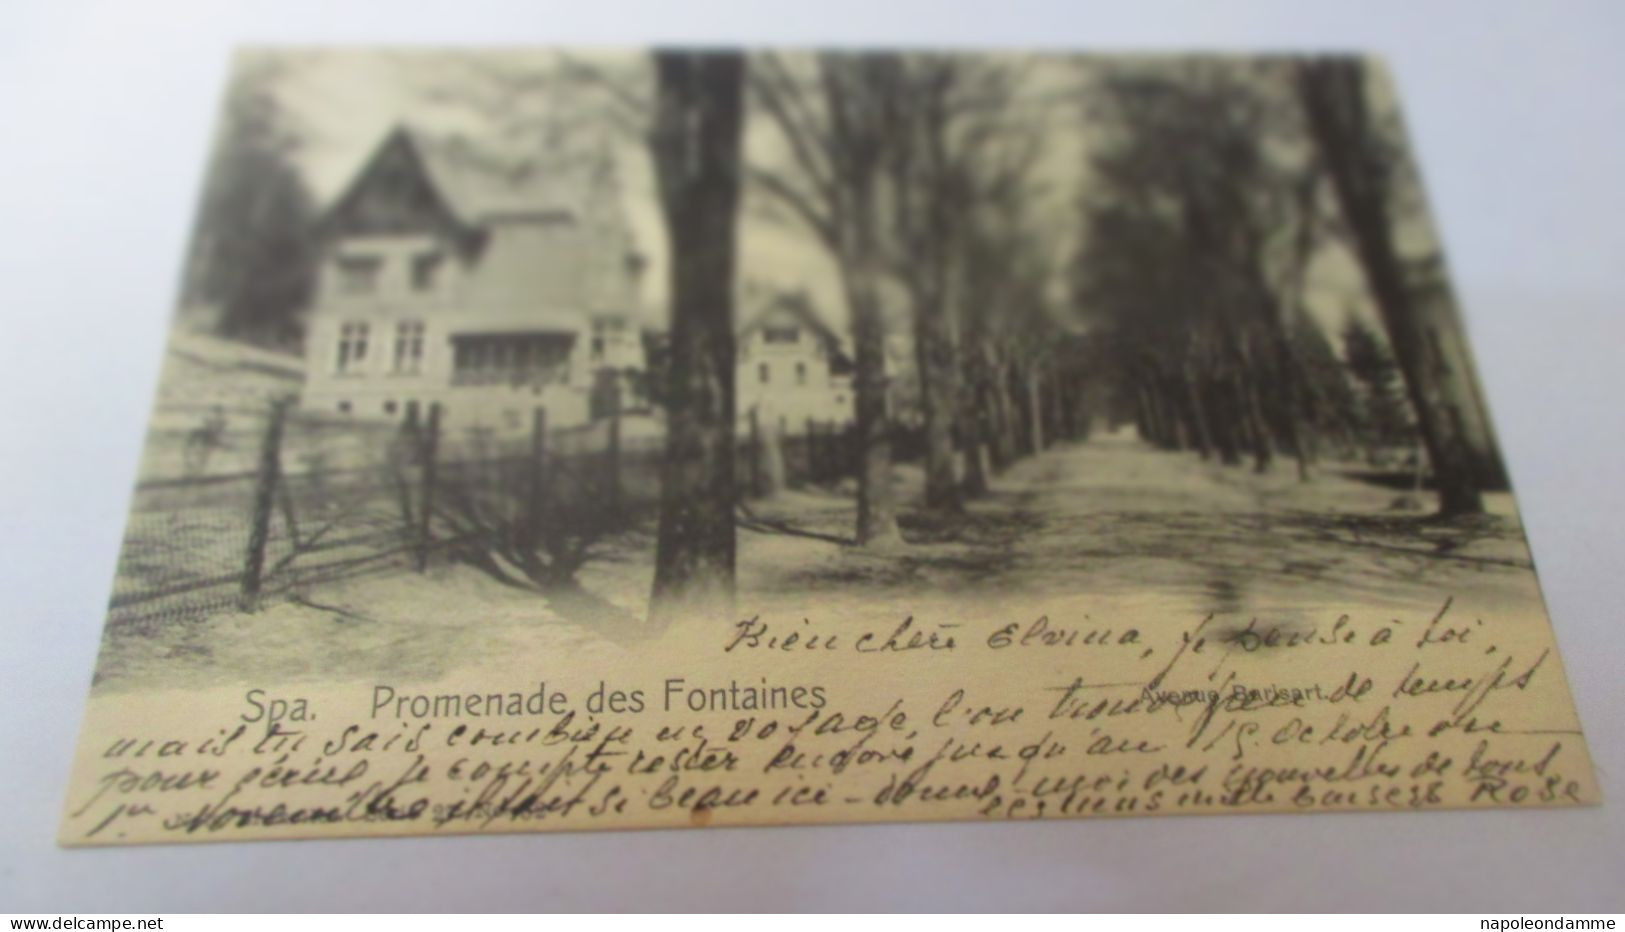 Bien chère Elvina, je pense à toi,
Spa. Promenade des Fontaines
Avenue Barisart.
mais tu sais combien en voyage, l'on trouve peu de temps
pour écrire je compte rester encore jusqu'au 15. Octobre ou
1er Novembre il fait si beau ici - donne-moi des nouvelles de tous
les miens mille baisers Rose
www.delcampe.net
napoleondamme